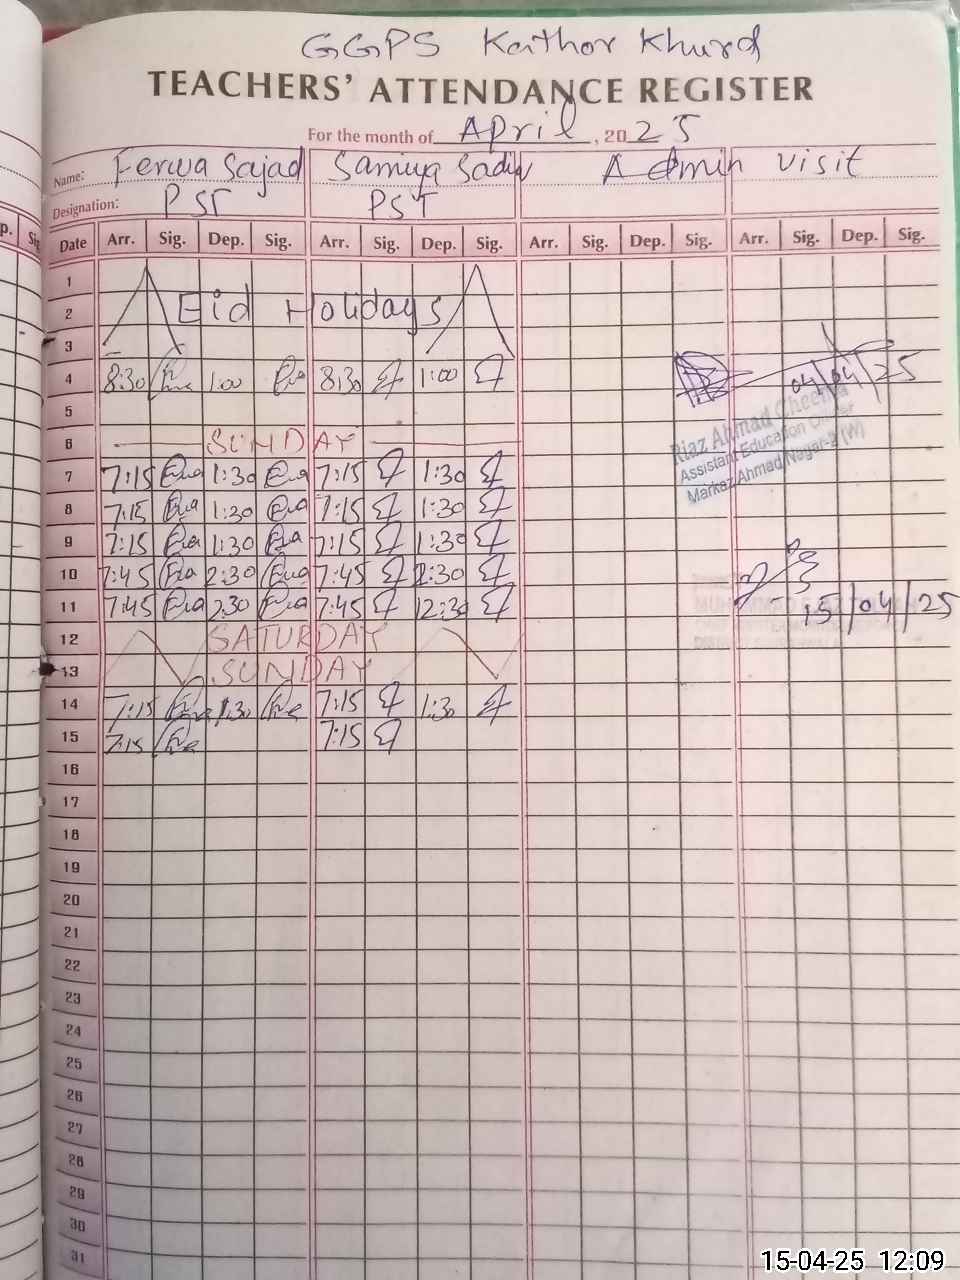 GGPS Kathor Khurd
TEACHERS' ATTENDANCE REGISTER
For the month of April, 2025
Name: Ferwa Sajad Samiya Sadiq Admin visit
Designation: PST PST
Date Arr. Sig. Dep. Sig. Arr. Sig. Dep. Sig. Arr. Sig. Dep. Sig. Arr. Sig. Dep. Sig.
1
2 Eid Holidays
3
4 8:30 1:00 8:30 1:00 04/04/25
5
Riaz Ahmad Cheema
Assistant Education Officer
Markaz Ahmad Nagar-2 (W)
6 SUNDAY
7 7:15 1:30 7:15 1:30
8 7:15 1:30 7:15 1:30
9 7:15 1:30 7:15 1:30
10 7:45 2:30 7:45 2:30
11 7:45 2:30 7:45 12:30 15/04/25
12 SATURDAY
13 SUNDAY
14 7:15 1:30 7:15 1:30
15 7:15 7:15
16
17
18
19
20
21
22
23
24
25
26
27
28
29
30
31
15-04-25 12:09